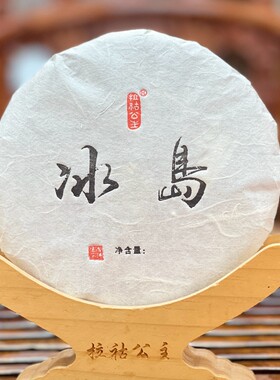 拉祜公主
冰島
净含量:
拉祜公主